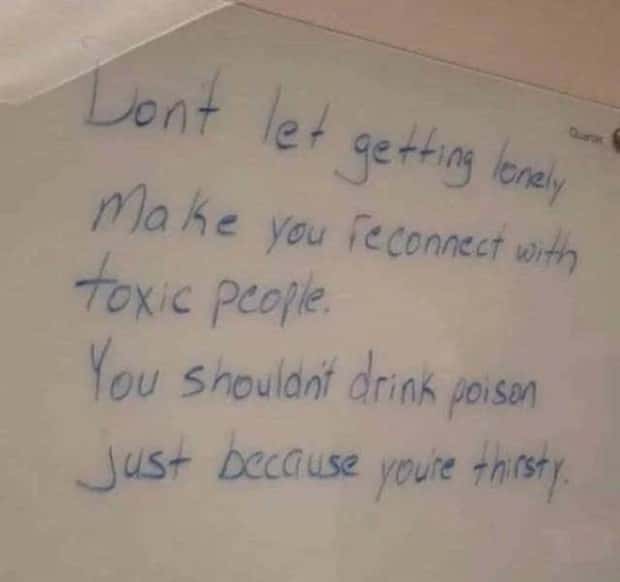 Don't let getting lonely
make you reconnect with
toxic people.
You shouldn't drink poison
just because you're thirsty.